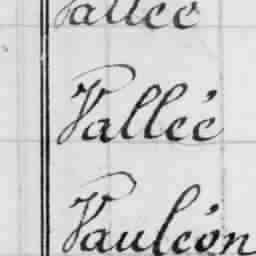 Vallée
Vallée
Vauléon